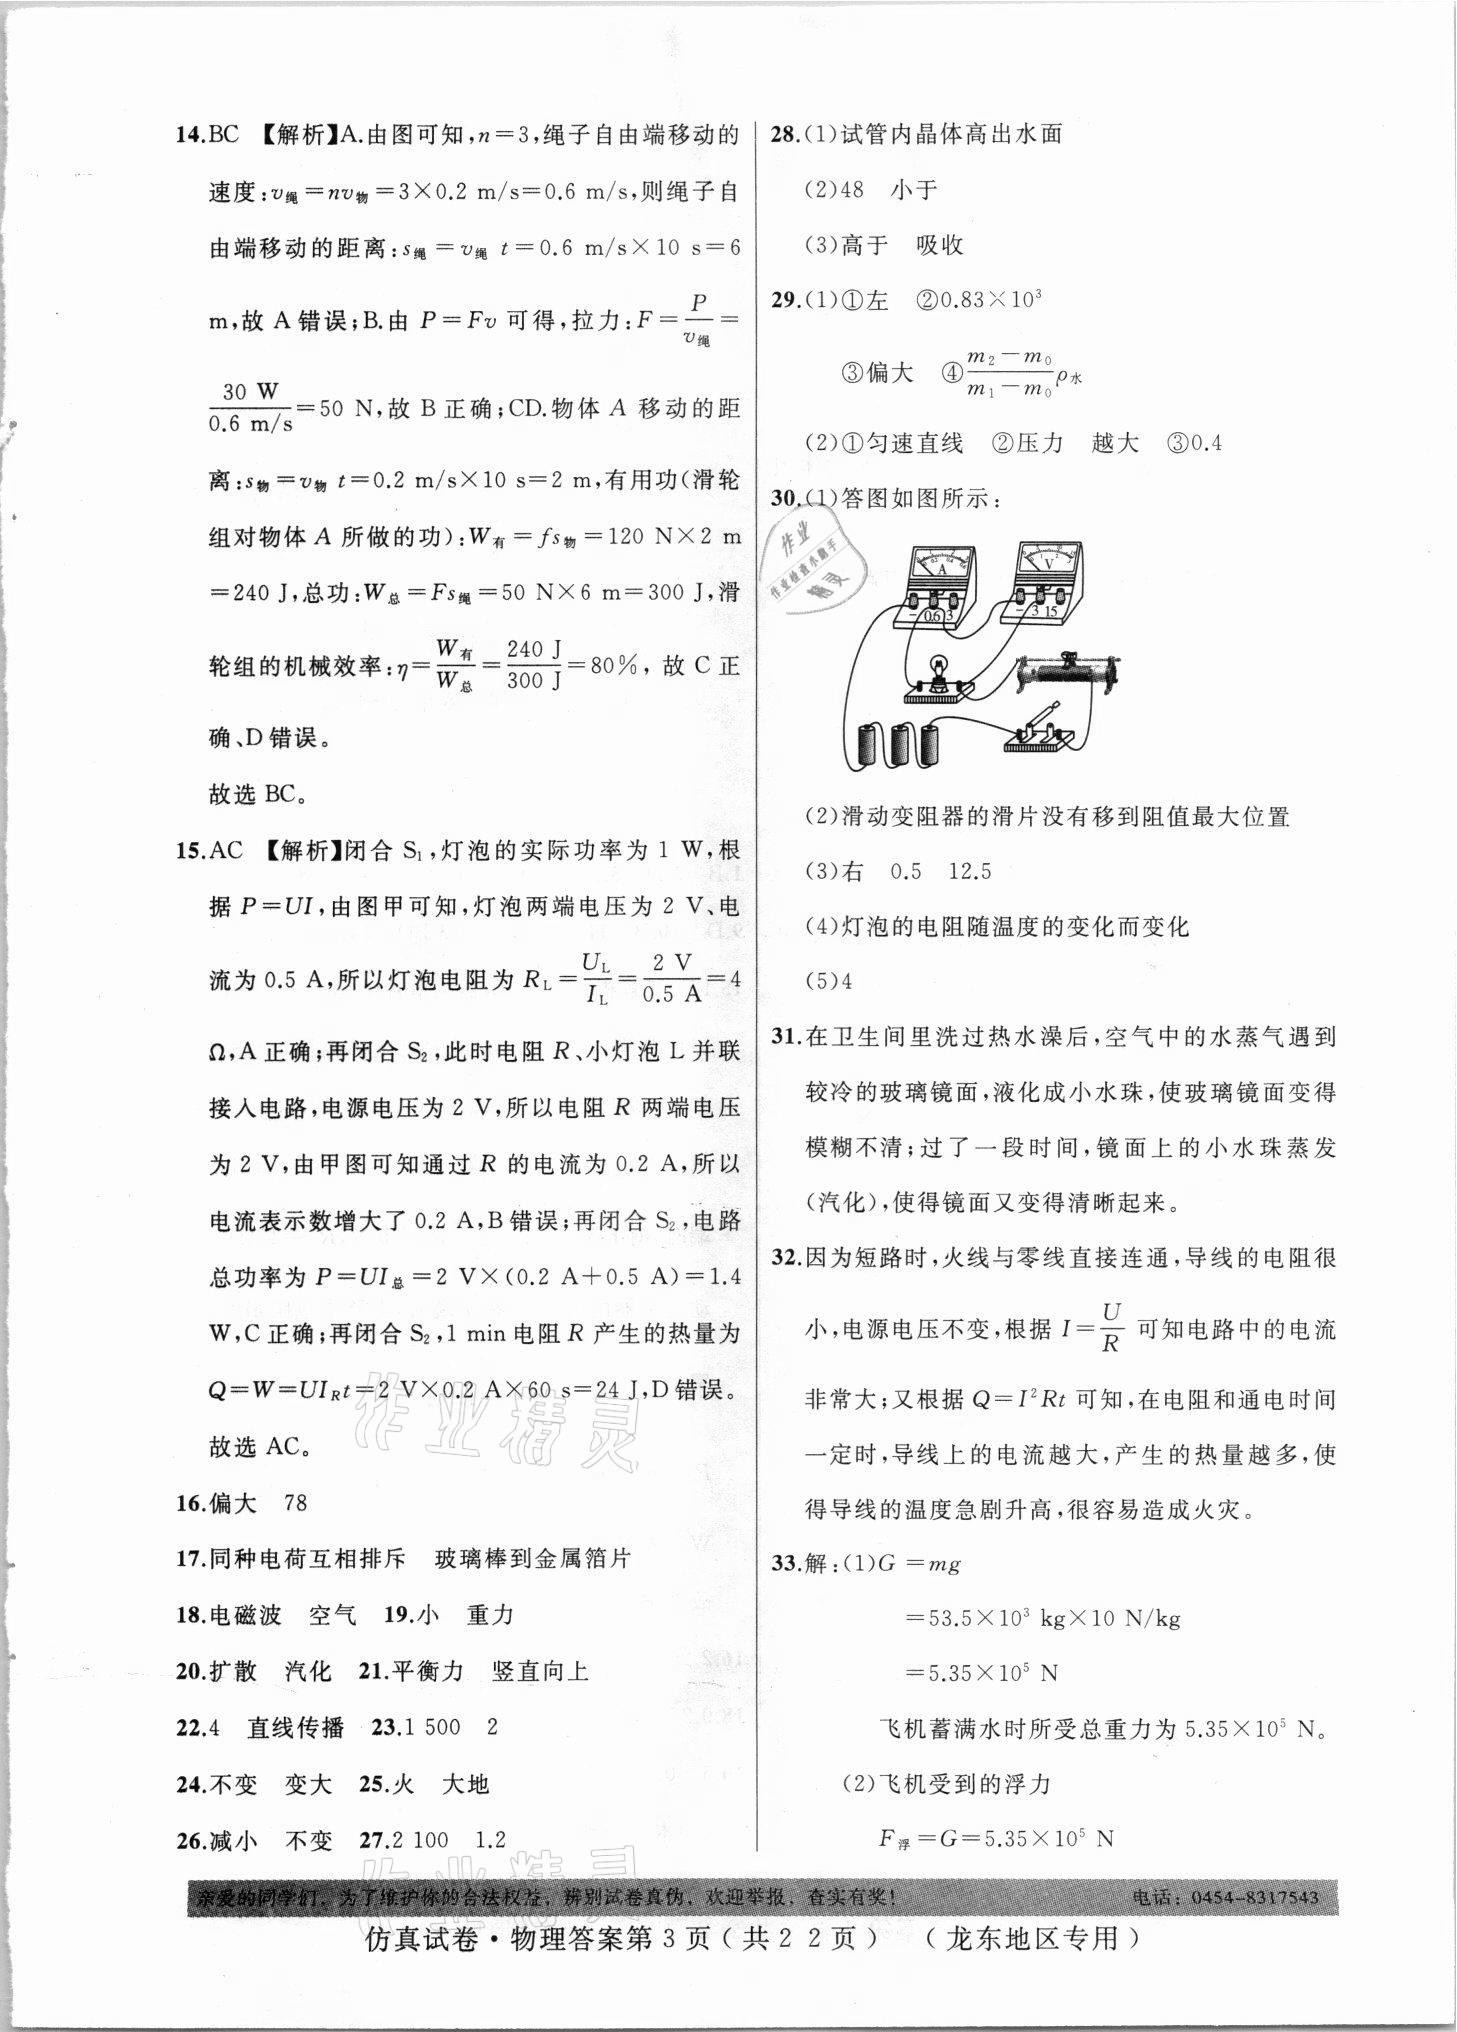 14.BC 【解析】A.由图可知,n=3,绳子自由端移动的
速度:v绳=nv物=3×0.2 m/s=0.6 m/s,则绳子自
由端移动的距离:s绳=v绳 t=0.6 m/s×10 s=6
m,故 A 错误;B.由 P=Fv 可得,拉力:F=P/v绳=
30 W/0.6 m/s=50 N,故 B 正确;CD.物体 A 移动的距
离:s物=v物 t=0.2 m/s×10 s=2 m,有用功(滑轮
组对物体 A 所做的功):W有=fs物=120 N×2 m
=240 J,总功:W总=Fs绳=50 N×6 m=300 J,滑
轮组的机械效率:η=W有/W总=240 J/300 J=80%,故 C 正
确、D 错误。
故选 BC。
15.AC 【解析】闭合 S₁,灯泡的实际功率为 1 W,根
据 P=UI,由图甲可知,灯泡两端电压为 2 V、电
流为 0.5 A,所以灯泡电阻为 R_L=U_L/I_L=2 V/0.5 A=4
Ω,A 正确;再闭合 S₂,此时电阻 R、小灯泡 L 并联
接入电路,电源电压为 2 V,所以电阻 R 两端电压
为 2 V,由甲图可知通过 R 的电流为 0.2 A,所以
电流表示数增大了 0.2 A,B 错误;再闭合 S₂,电路
总功率为 P=UI总=2 V×(0.2 A+0.5 A)=1.4
W,C 正确;再闭合 S₂,1 min 电阻 R 产生的热量为
Q=W=UI_R t=2 V×0.2 A×60 s=24 J,D 错误。
故选 AC。
16.偏大 78
17.同种电荷互相排斥 玻璃棒到金属箔片
18.电磁波 空气 19.小 重力
20.扩散 汽化 21.平衡力 竖直向上
22.4 直线传播 23.1 500 2
24.不变 变大 25.火 大地
26.减小 不变 27.2 100 1.2
28.(1)试管内晶体高出水面
(2)48 小于
(3)高于 吸收
29.(1)①左 ②0.83×10³
③偏大 ④(m₂-m₀)/(m₁-m₀)ρ水
(2)①匀速直线 ②压力 越大 ③0.4
30.(1)答图如图所示:
A
V
- 0.6 3
- 3 15
(2)滑动变阻器的滑片没有移到阻值最大位置
(3)右 0.5 12.5
(4)灯泡的电阻随温度的变化而变化
(5)4
31.在卫生间里洗过热水澡后,空气中的水蒸气遇到
较冷的玻璃镜面,液化成小水珠,使玻璃镜面变得
模糊不清;过了一段时间,镜面上的小水珠蒸发
(汽化),使得镜面又变得清晰起来。
32.因为短路时,火线与零线直接连通,导线的电阻很
小,电源电压不变,根据 I=U/R 可知电路中的电流
非常大;又根据 Q=I²Rt 可知,在电阻和通电时间
一定时,导线上的电流越大,产生的热量越多,使
得导线的温度急剧升高,很容易造成火灾。
33.解:(1)G =mg
=53.5×10³ kg×10 N/kg
=5.35×10⁵ N
飞机蓄满水时所受总重力为 5.35×10⁵ N。
(2)飞机受到的浮力
F浮=G=5.35×10⁵ N
作业
作业检查小助手
精灵
作业精灵
作业精灵
亲爱的同学们,为了维护你的合法权益,辨别试卷真伪,欢迎举报,查实有奖! 电话:0454-8317543
仿真试卷·物理答案第3页(共22页) (龙东地区专用)